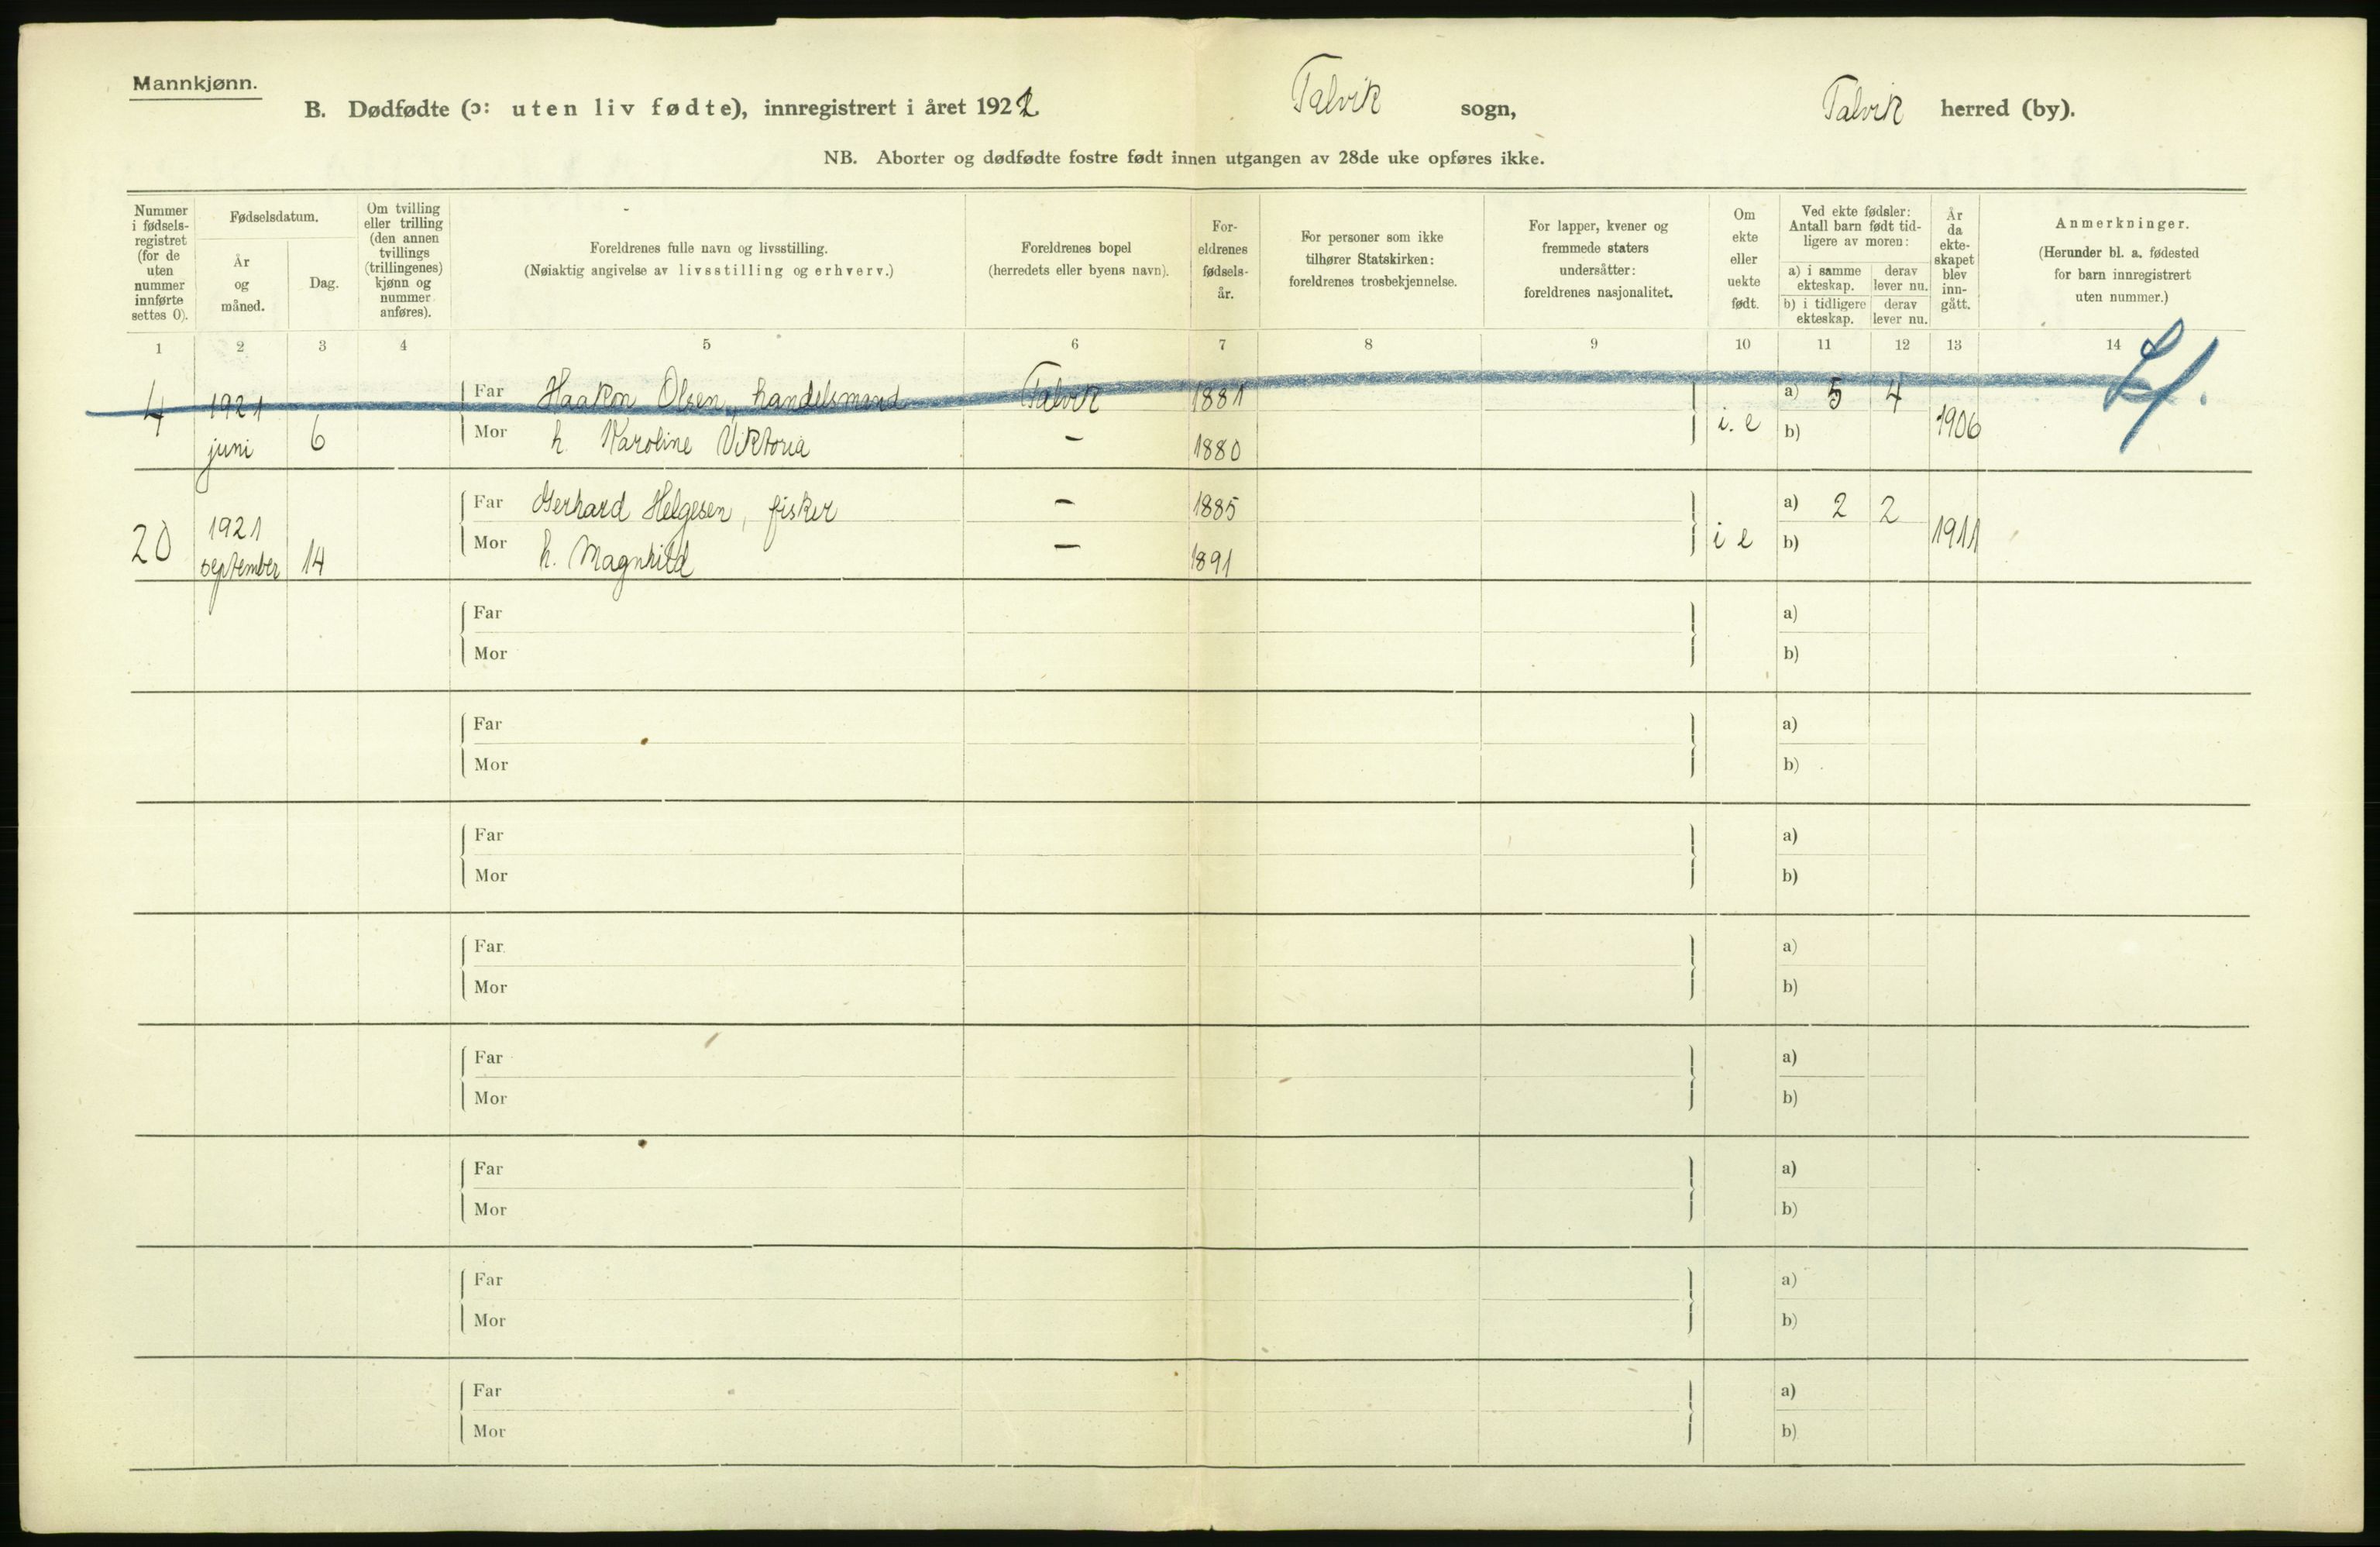 Mannkjønn.
B. Dødfødte (ɔ: uten liv fødte), innregistrert i året 1922 Talvik sogn, Talvik herred (by).
NB. Aborter og dødfødte fostre født innen utgangen av 28de uke opføres ikke.
Nummer i fødsels-registret (for de uten nummer innførte settes 0).
Fødselsdatum.
År og måned.
Dag.
Om tvilling eller trilling (den annen tvillings (trillingenes) kjønn og nummer anføres).
Foreldrenes fulle navn og livsstilling.
(Nøiaktig angivelse av livsstilling og erhverv.)
Foreldrenes bopel
(herredets eller byens navn).
For-eldrenes fødsels-år.
For personer som ikke tilhører Statskirken: foreldrenes trosbekjennelse.
For lapper, kvener og fremmede staters undersåtter: foreldrenes nasjonalitet.
Om ekte eller uekte født.
Ved ekte fødsler: Antall barn født tid-ligere av moren:
a) i samme ekteskap. derav lever nu.
b) i tidligere ekteskap. derav lever nu.
År da ekte-skapet blev inn-gått.
Anmerkninger.
(Herunder bl. a. fødested for barn innregistrert uten nummer.)
1 2 3 4 5 6 7 8 9 10 11 12 13 14
4 1921 Far Haakon Olsen, handelsmand Talvik 1881 a) 5 4
juni 6 Mor h. Karoline Viktoria — 1880 i. e b) 1906
20 1921 Far Gerhard Helgesen, fisker — 1885 a) 2 2
september 14 Mor h. Magnhild — 1891 i e b) 1911
Far a)
Mor b)
Far a)
Mor b)
Far a)
Mor b)
Far a)
Mor b)
Far a)
Mor b)
Far a)
Mor b)
Far a)
Mor b)
Far a)
Mor b)